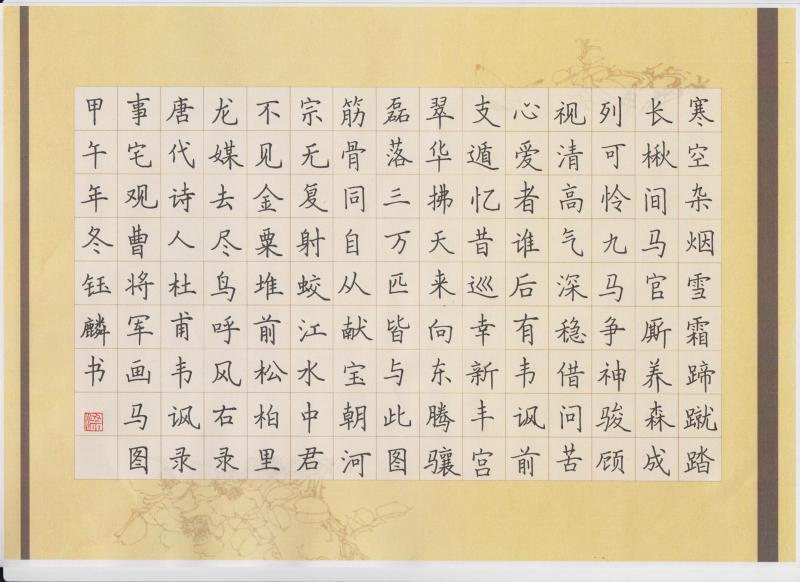 寒空杂烟雪霜蹄蹴踏
长楸间马官厮养森成
列可怜九马争神骏顾
视清高气深稳借问苦
心爱者谁后有韦讽前
支遁忆昔巡幸新丰宫
翠华拂天来向东腾骧
磊落三万匹皆与此图
筋骨同自从献宝朝河
宗无复射蛟江水中君
不见金粟堆前松柏里
龙媒去尽鸟呼风右录
唐代诗人杜甫韦讽录
事宅观曹将军画马图
甲午年冬钰麟书